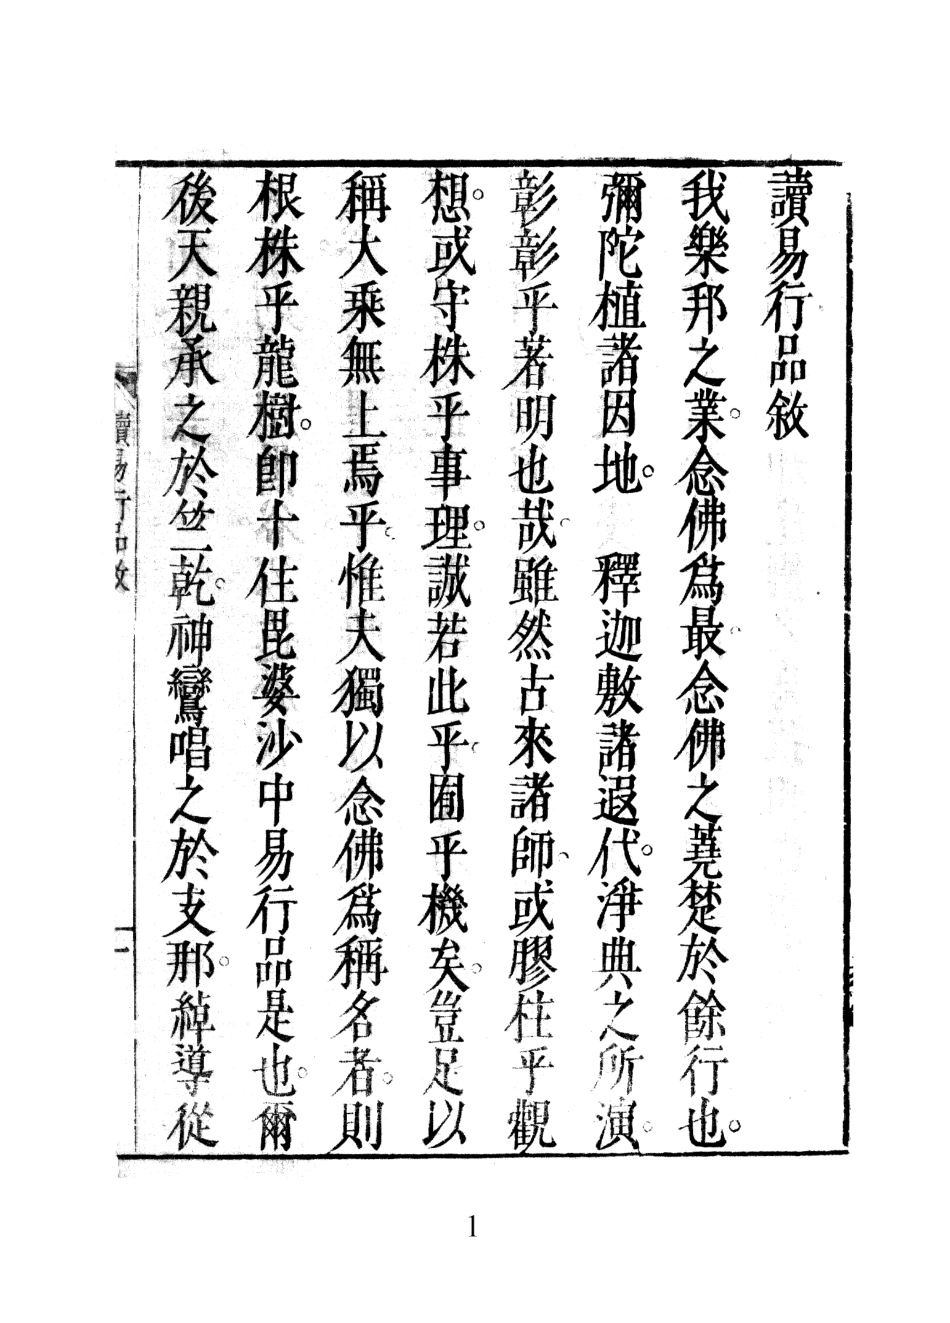 讀易行品敘
我樂邦之業。念佛爲最。念佛之蕘楚於餘行也。
彌陀植諸因地。　釋迦敷諸遐代。淨典之所演。
彰彰乎若明也哉。雖然古來諸師、或膠柱乎觀
想。或守株乎事理。誠若此乎。囿乎機矣。豈足以
稱大乘無上焉乎。惟夫獨以念佛爲稱名者。則
根株乎龍樹。卽十住毘婆沙中易行品是也。爾
後天親承之於竺乾。神鸞唱之於支那。綽導從
讀易行品敘
一
1